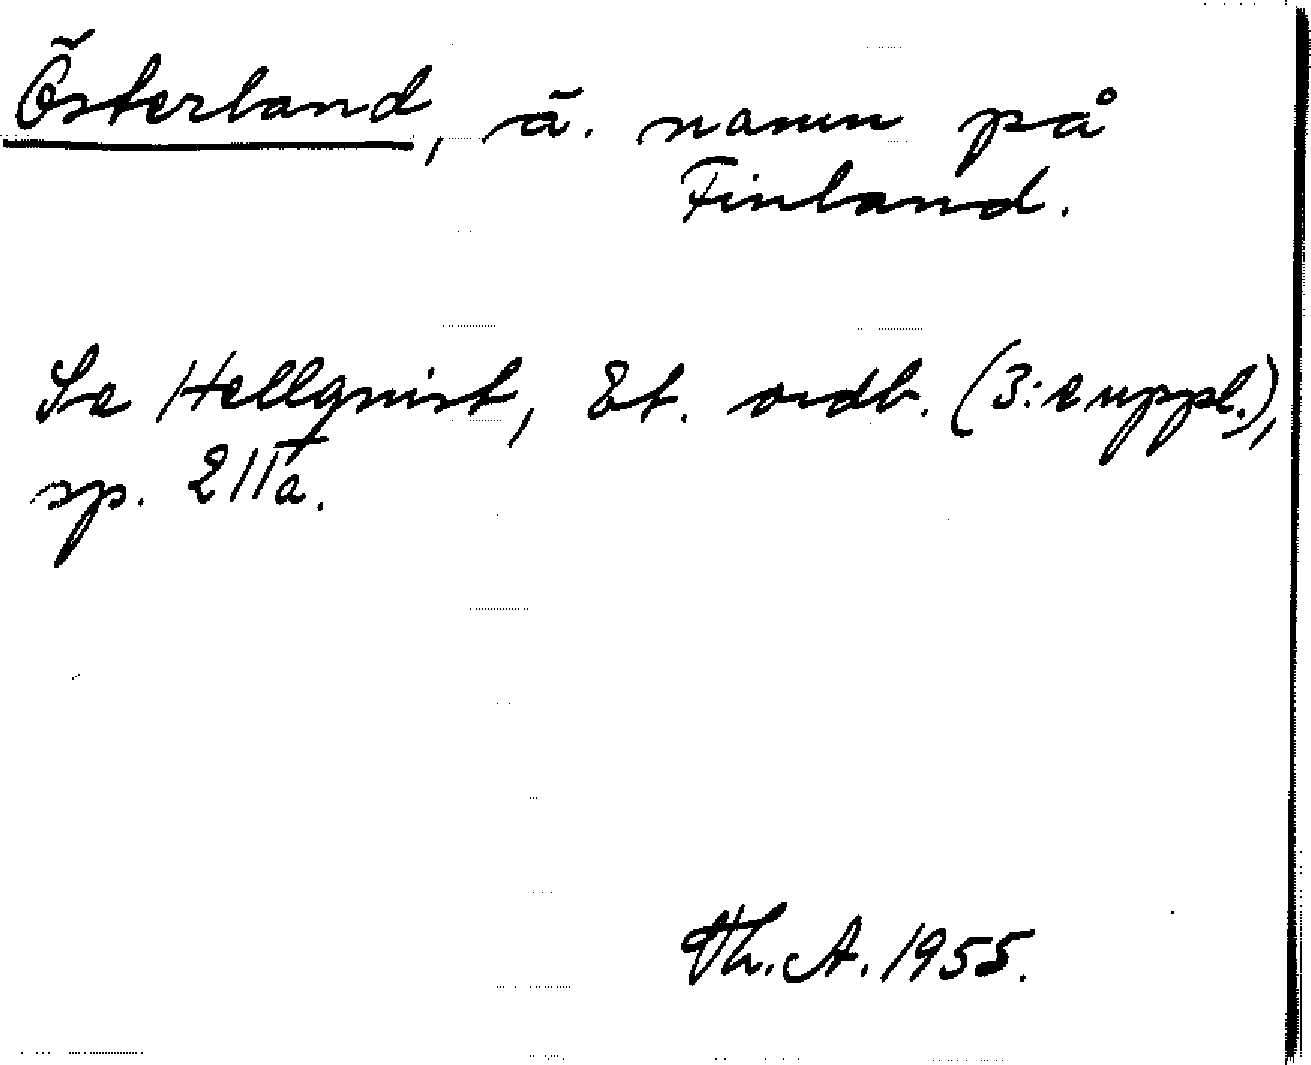 Österland, ä. namn på
Finland.
Se Hellqvist, Et. ordb. (3:e uppl.),
sp. 211a.
Th. A. 1955.